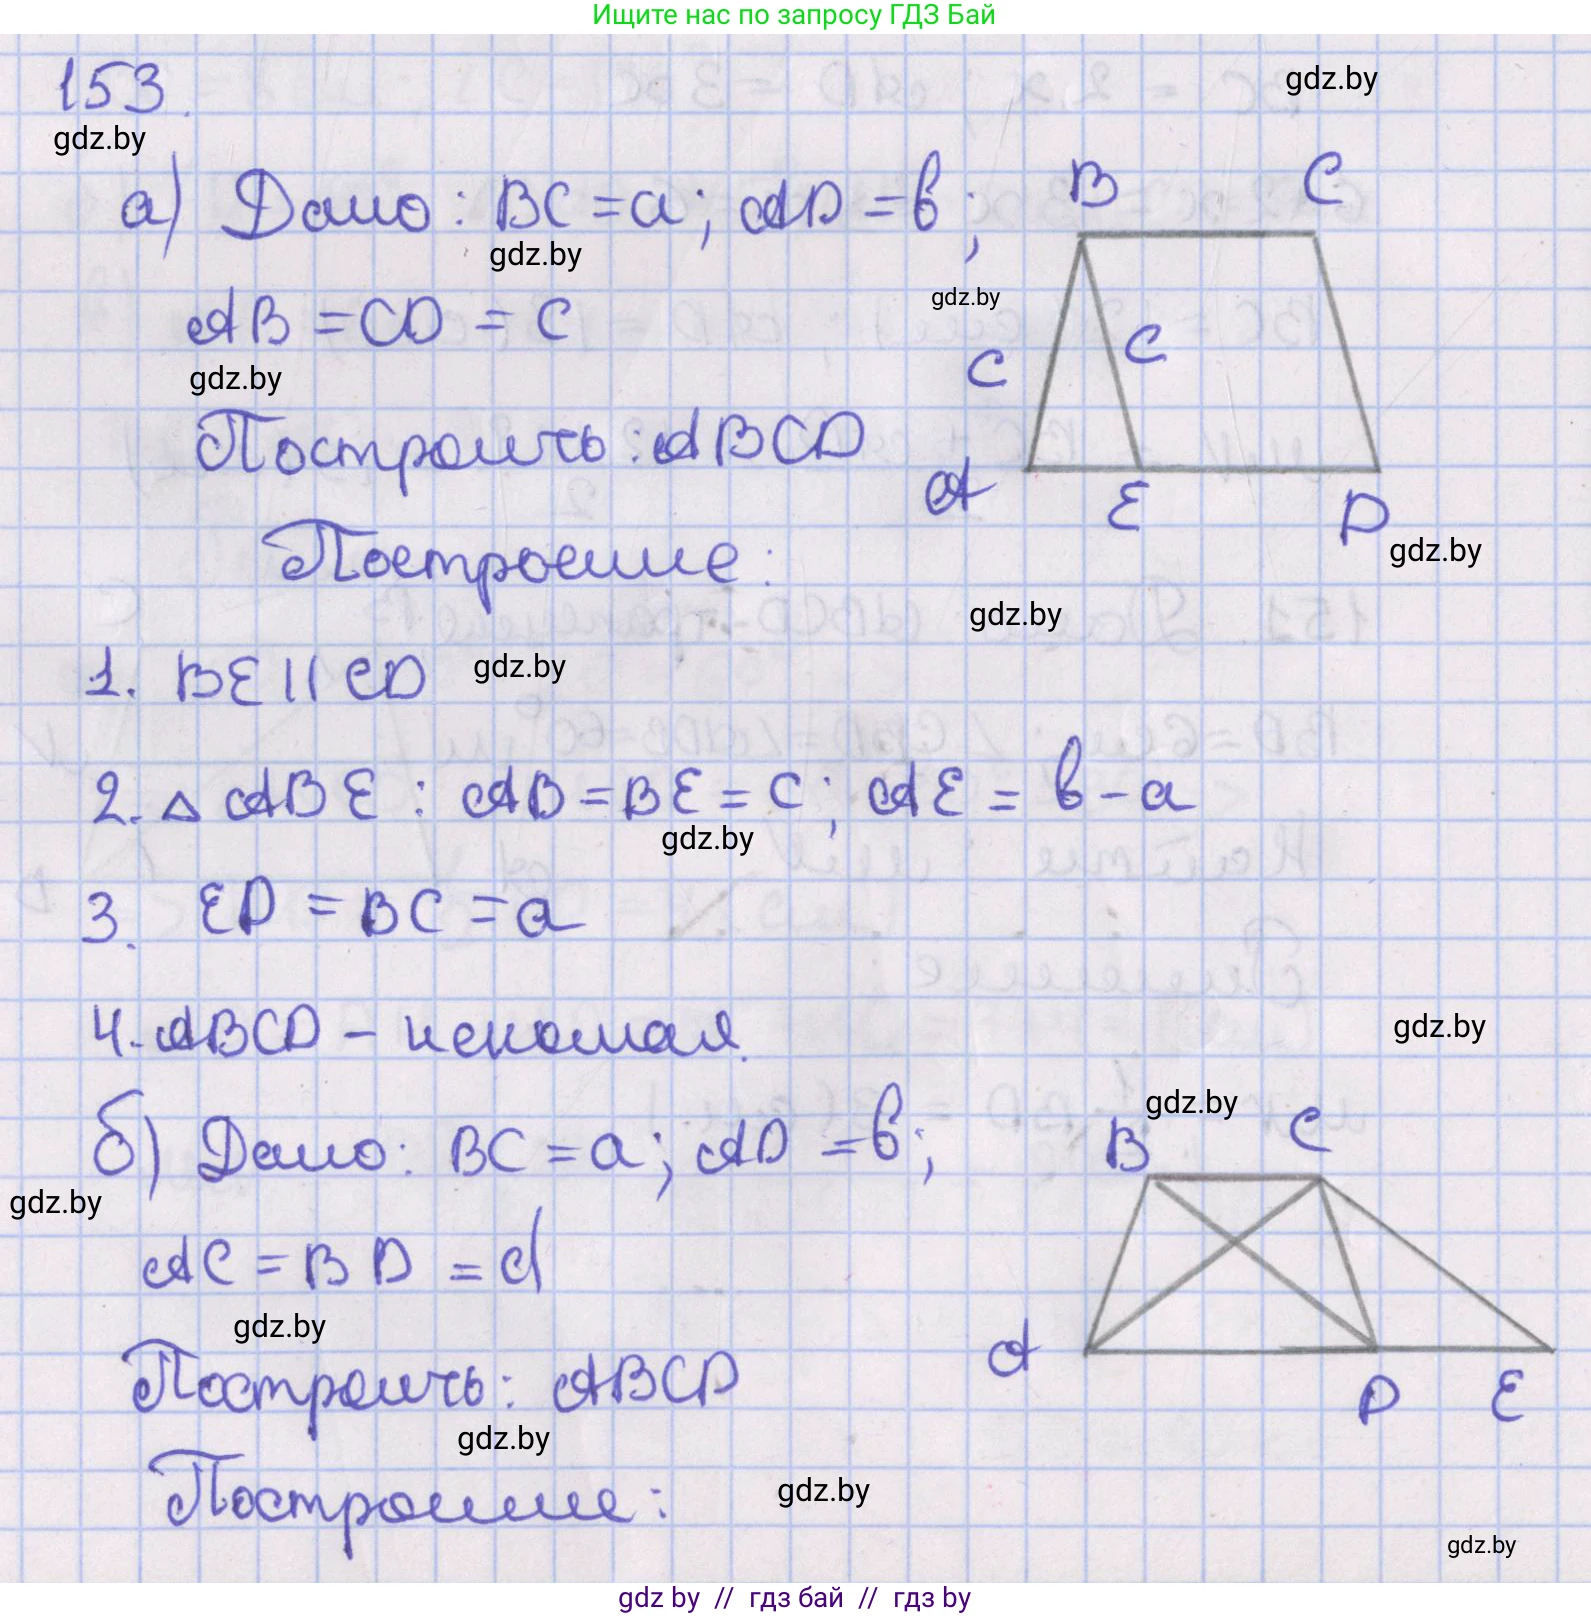 Ищите нас по запросу ГДЗ Бай
153.
gdz.by
gdz.by
а) Дано: BC = a; AD = b;
B C
gdz.by
gdz.by
AB = CD = c
c c
gdz.by
Построить: ABCD
A E D
gdz.by
Построение:
gdz.by
1. BE || CD
gdz.by
2. △ ABE : AB = BE = c; AE = b - a
gdz.by
3. ED = BC = a
4. ABCD - искомая.
gdz.by
gdz.by
б) Дано: BC = a; AD = b;
B C
gdz.by
AC = BD = d
gdz.by
Построить: ABCD
A D E
gdz.by
Построение:
gdz.by
gdz.by
gdz by // гдз бай // гдз by